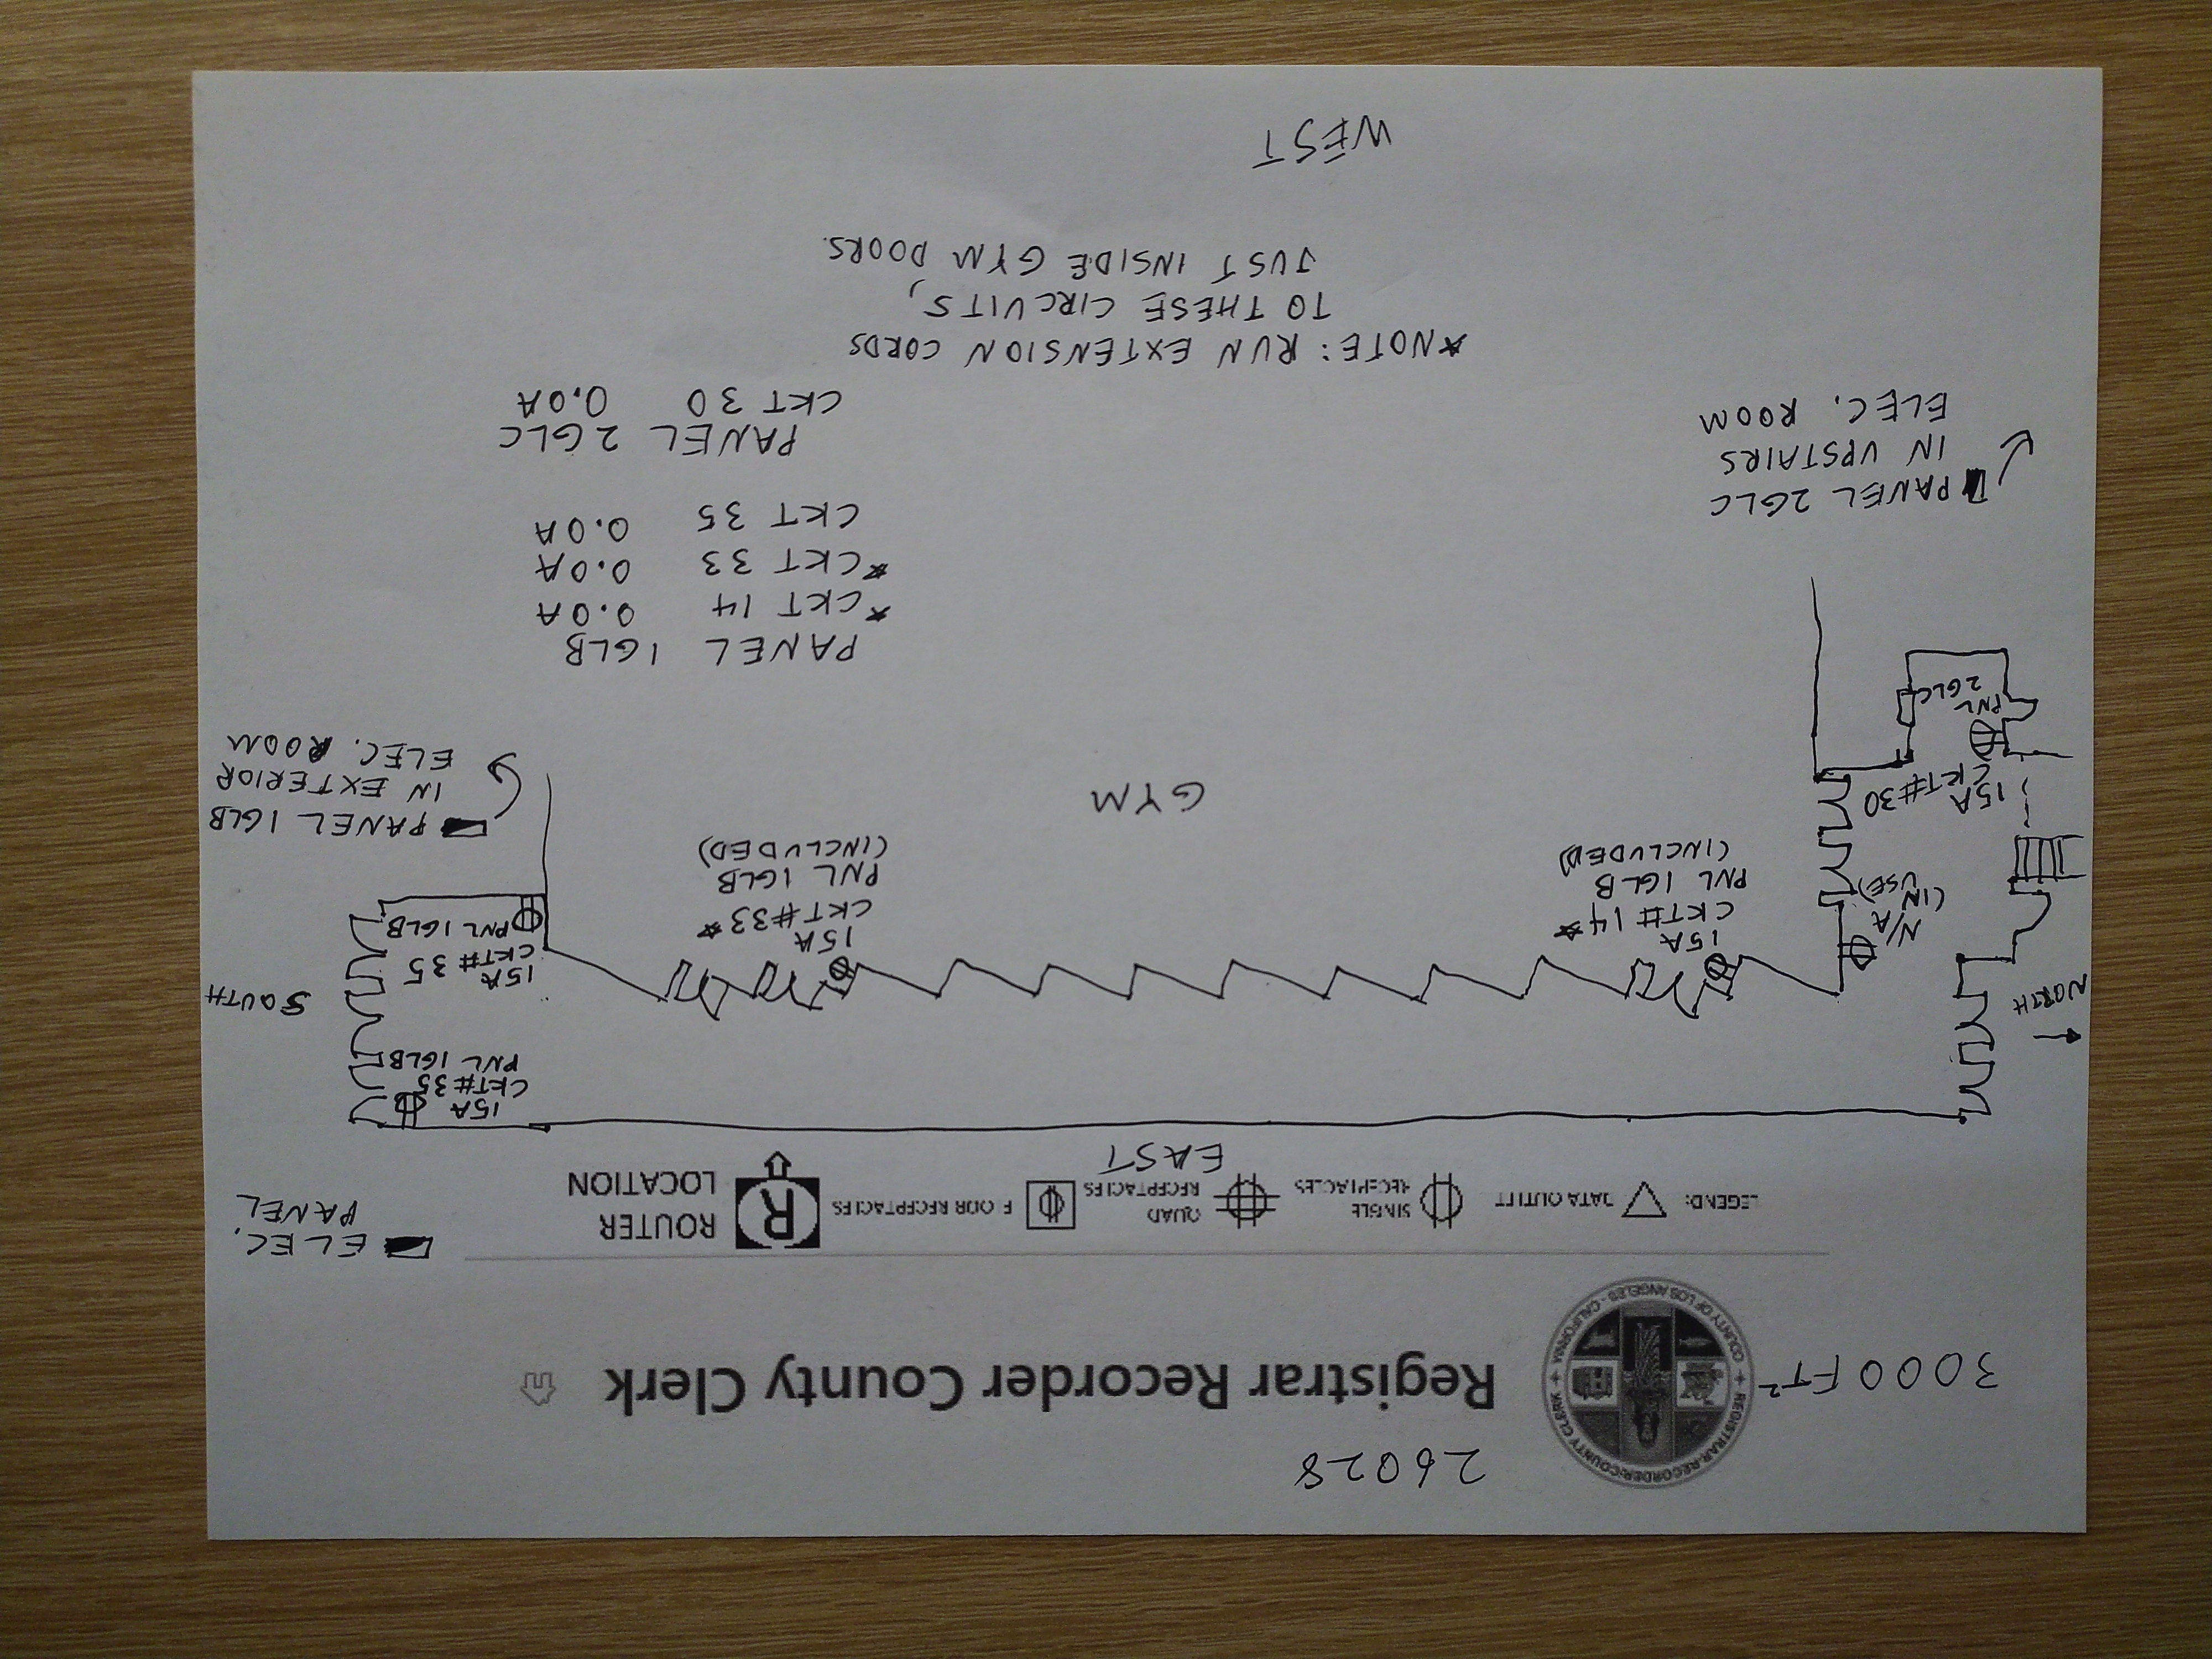 26028
3000 FT²
Registrar Recorder County Clerk
REGISTRAR-RECORDER/COUNTY CLERK
COUNTY OF LOS ANGELES - CALIFORNIA
ELEC.
PANEL
LEGEND:
DATA OUTLET
SINGLE
RECEPTACLES
QUAD
RECEPTACLES
FLOOR RECEPTACLES
R
ROUTER
LOCATION
EAST
15A
CKT#35
PNL 1GLB
NORTH
SOUTH
15A
CKT# 35
PNL 1GLB
N/A
(IN
USE)
15A
CKT# 14*
PNL 1GLB
(INCLUDED)
15A
CKT#33*
PNL 1GLB
(INCLUDED)
15A
CKT#30
PNL
2GLC
GYM
PANEL 1GLB
IN EXTERIOR
ELEC. ROOM
PANEL 1GLB
*CKT 14 0.0A
*CKT 33 0.0A
CKT 35 0.0A
PANEL 2GLC
IN UPSTAIRS
ELEC. ROOM
PANEL 2GLC
CKT 30 0.0A
*NOTE: RUN EXTENSION CORDS
TO THESE CIRCUITS,
JUST INSIDE GYM DOORS.
WEST